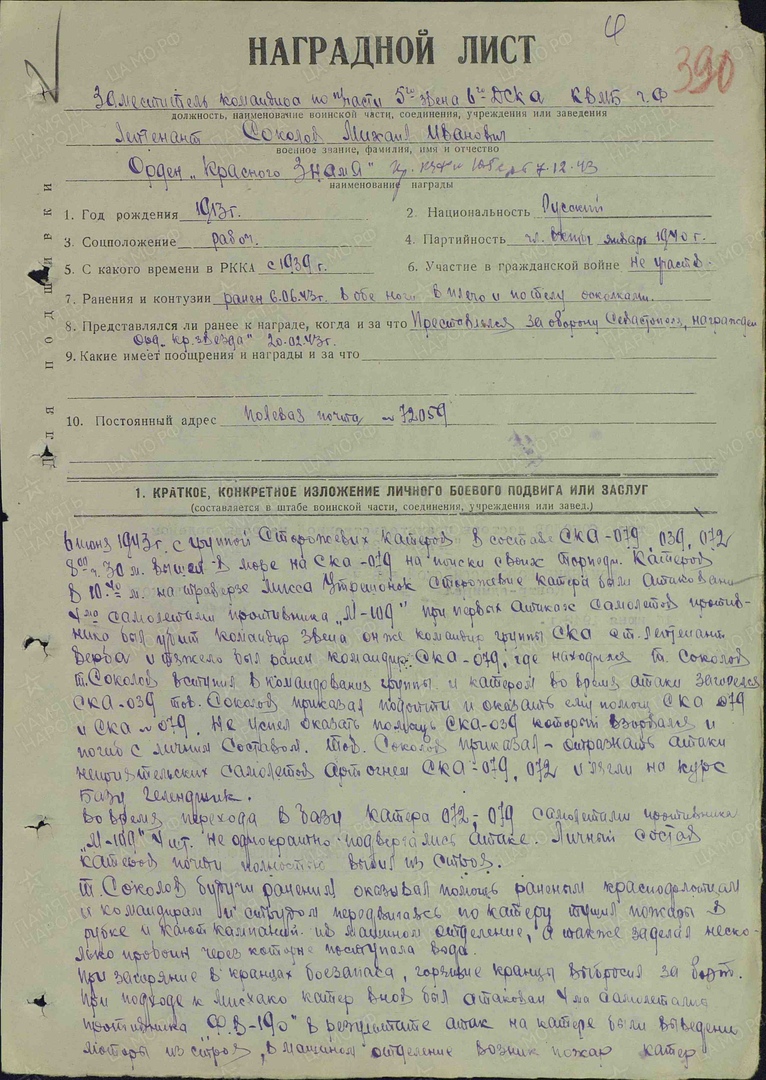 НАГРАДНОЙ ЛИСТ
390
Заместитель командира по п/части 5го звена 6го ДСКА КВМБ ч.Ф
должность, наименование воинской части, соединения, учреждения или заведения
Лейтенант Соколов Михаил Иванович
военное звание, фамилия, имя и отчество
Орден „Красного Знамя" 7.12.43
наименование награды
Для подшивки
1. Год рождения 1913г. 2. Национальность Русский
3. Соцположение рабоч. 4. Партийность чл. января 1940 г.
5. С какого времени в РККА с 1939 г. 6. Участие в гражданской войне Не участв.
7. Ранения и контузии ранен 6.06.43г. в обе ноги в плечо и по телу осколками.
8. Представлялся ли ранее к награде, когда и за что Преставлялся за оборону Севастополя, награжден
Орд. „Кр. звезда" 20.02.43г.
9. Какие имеет поощрения и награды и за что
10. Постоянный адрес Полевая почта № 72059
1. КРАТКОЕ, КОНКРЕТНОЕ ИЗЛОЖЕНИЕ ЛИЧНОГО БОЕВОГО ПОДВИГА ИЛИ ЗАСЛУГ
(составляется в штабе воинской части, соединения, учреждения или завед.)
6 июня 1943г. с группой Сторожевых Катеров в составе СКА-079 039, 072
8 ч. 30 м. вышел в море на СКА-079 на поиски своих Торпедн. Катеров
В м. на траверзе Мысса Утришонок сторожевые катера были атакованы
4мя самолетами противника „М-109" при первых атаках самолетов против-
ника был убит командир звена он же командир группы СКА ст. лейтенант
Верба и тяжело был ранен командир СКА-079, где находился т. Соколов
т. Соколов вступил в командования группы и катером во время атаки загорелся
СКА-039 тов. Соколов приказал подойти и оказать ему помощ СКА 079
и СКА № 079. Не успел оказать помощь СКА-039 который взорвался и
погиб с личным составом. Тов. Соколов приказал - отражать атаки
неприятельских самолетов артогнем СКА-079, 072 и лягли на курс
Базу Геленджик.
Во время перехода в базу катера 072-079 самолетами противника
„М-109" 4 шт. не однократно подвергались атаке. Личный состав
катеров почти полностью вышел из строя.
т. Соколов будучи ранения оказывал помощь раненым краснофлотцам
и командирам и с трудом передвигаясь по катеру тушил пожары в
рубке и кают кампании и в машином отделение, а также заделал неско-
лько пробоин через которые поступала вода.
При загорание в кранцах боезапаса, горящие кранцы выбросил за борт.
При подходе к Мысхако катер вновь был атакован 4мя самолетами
противника „Ф.В-190" в результите атак на катере были выведени
моторы из строя, в машином отделение возник пожар катер